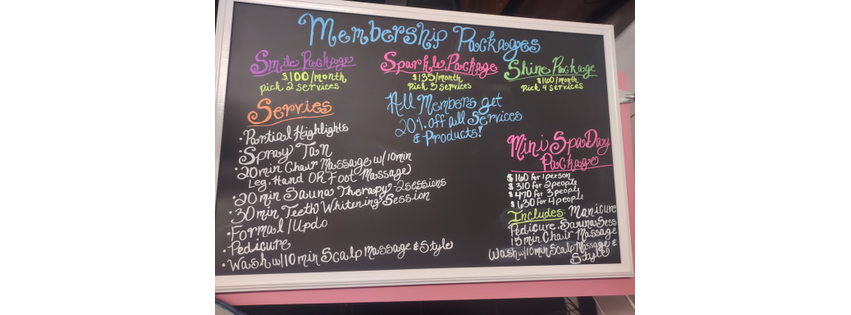 Membership Packages
Smile Package
$100/month,
pick 2 services
Sparkle Package
$135/month,
pick 3 services
Shine Package
$160/month
pick 4 services
Servies
All Members get
20% off all Services
& Products!
• Partial Highlights
• Spray Tan
• 20min Chair Massage w/10min
Leg, Hand OR Foot Massage
• 20 min Sauna Therapy - 2 sessions
• 30 min Teeth Whitening Session
• Formal/Updo
• Pedicure
• Wash w/10min Scalp Massage & Style
Mini Spa Day
Package
$160 for 1 person
$310 for 2 people
$470 for 3 people
$630 for 4 people
Includes Manicure
Pedicure, Sauna Sess
15min Chair Massage
Wash w/10min Scalp Massage &
Style